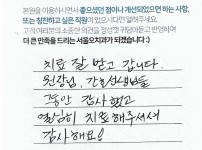 본원을 이용하시면서 좋으셨던 점이나 개선되었으면 하는 사항,
또는 칭찬하고 싶은 직원이 있으시다면 말해주세요.
고객 여러분의 소중한 의견을 경청해 귀담아듣고 반영하여
더 큰 만족을 드리는 서울오치과가 되겠습니다 :)
치료 잘 받고 갑니다.
원장님, 간호선생님들
그동안 감사했고
열심히 치료해주셔서
감사해요!